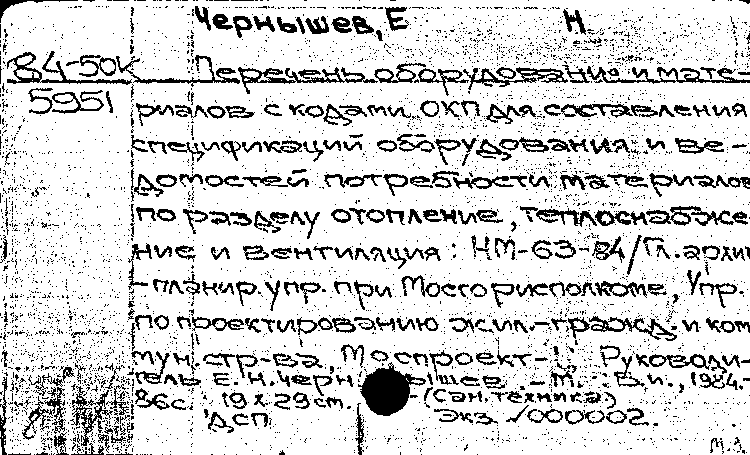 Чернышев, Е Н
84-50к Перечень оборудования и мате-
5951 риалов с кодами ОКП для составления
спецификаций оборудования и ве-
домостей потребности материалов
по разделу отопление, теплоснабже
ние и вентиляция: НМ-63-84/Гл. архит
-планир. упр. при Мосгорисполкоме, Упр.
по проектированию жил.-гражд. и ком
мун. стр-ва, Моспроект-1; Руководи-
тель Е.Н. Чернышев. - М.: Б.и., 1984.-
86с. 19 х 29 см. - (Сан. техника)
ДСП Экз. √000002.